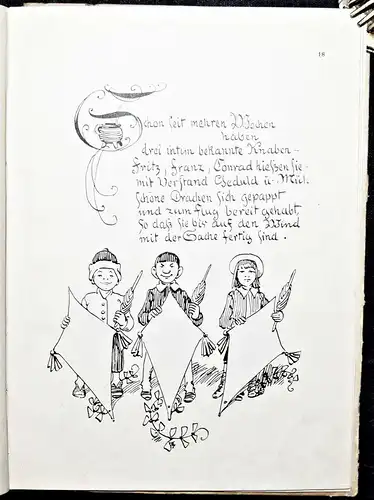 18
Schon seit mehren Wochen
haben
drei intim bekannte Knaben -
Fritz, Franz, Conrad hießen sie -
mit Verstand Geduld u. Müh.
schöne Drachen sich gepappt
und zum Flug bereit gehabt,
so daß sie bis auf den Wind
mit der Sache fertig sind.